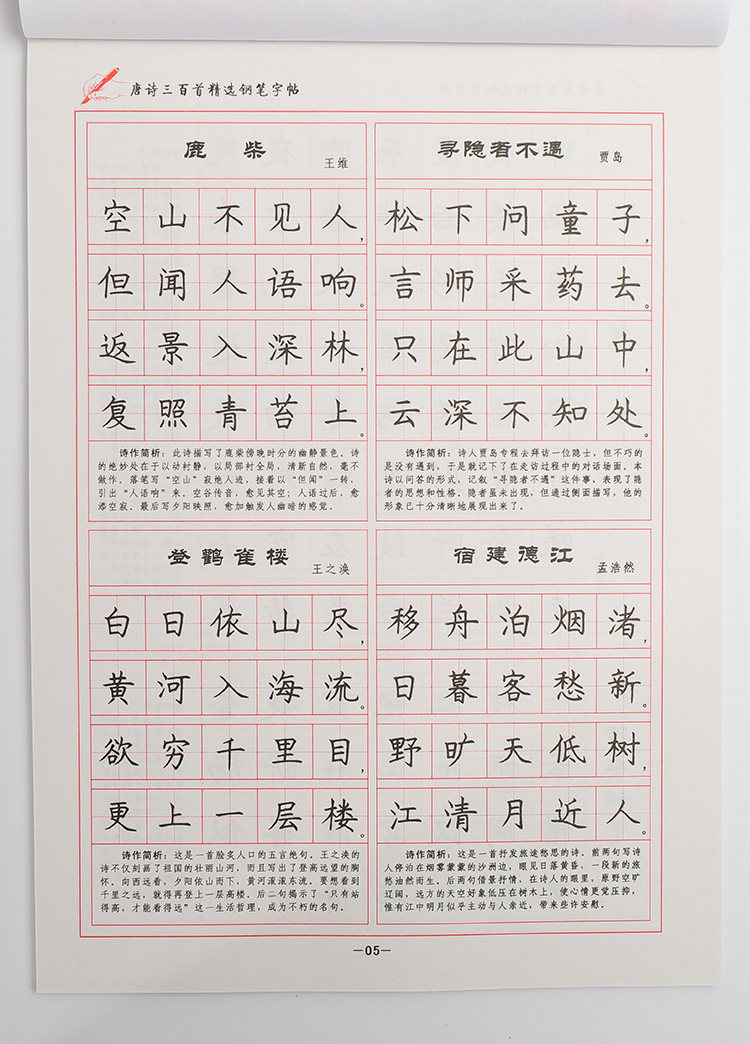 唐诗三百首精选钢笔字帖
鹿 柴
王维
空山不见人，
但闻人语响。
返景入深林，
复照青苔上。
诗作简析：此诗描写了鹿柴傍晚时分的幽静景色。诗
的绝妙处在于以动衬静，以局部衬全局，清新自然，毫不
做作。落笔写“空山”寂绝人迹，接着以“但闻”一转，
引出“人语响”来。空谷传音，愈见其空；人语过后，愈
添空寂。最后写夕阳映照，愈加触发人幽暗的感觉。
寻隐者不遇
贾岛
松下问童子，
言师采药去。
只在此山中，
云深不知处。
诗作简析：诗人贾岛专程去拜访一位隐士，但不巧的
是没有遇到，于是就记下了在走访过程中的对话场面。本
诗以问答的形式，记叙“寻隐者不遇”这件事，表现了隐
者的思想和性格。隐者虽未出现，但通过侧面描写，他的
形象已十分清晰地展现出来了。
登鹳雀楼
王之涣
白日依山尽，
黄河入海流。
欲穷千里目，
更上一层楼。
诗作简析：这是一首脍炙人口的五言绝句。王之涣的
诗不仅刻画了祖国的壮丽山河，而且写出了登高远望的胸
怀。向西远看，夕阳依山而下，黄河滚滚东流。要想看到
千里之远，就得再登上一层高楼。后二句揭示了“只有站
得高，才能看得远”这一生活哲理，成为不朽的名句。
宿建德江
孟浩然
移舟泊烟渚，
日暮客愁新。
野旷天低树，
江清月近人。
诗作简析：这是一首抒发旅途愁思的诗。前两句写诗
人停泊在烟雾蒙蒙的沙洲边，眼见日落黄昏，一段新的旅
愁油然而生。后两句借景抒情，在诗人的眼里，原野空旷
辽阔，远方的天空好象低压在树木上，使心情更觉压抑，
惟有江中明月似乎主动与人亲近，带来些许安慰。
—05—